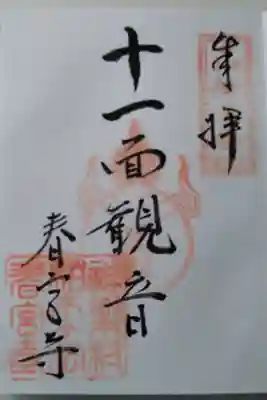 奉拝
十一面観音
春宮寺